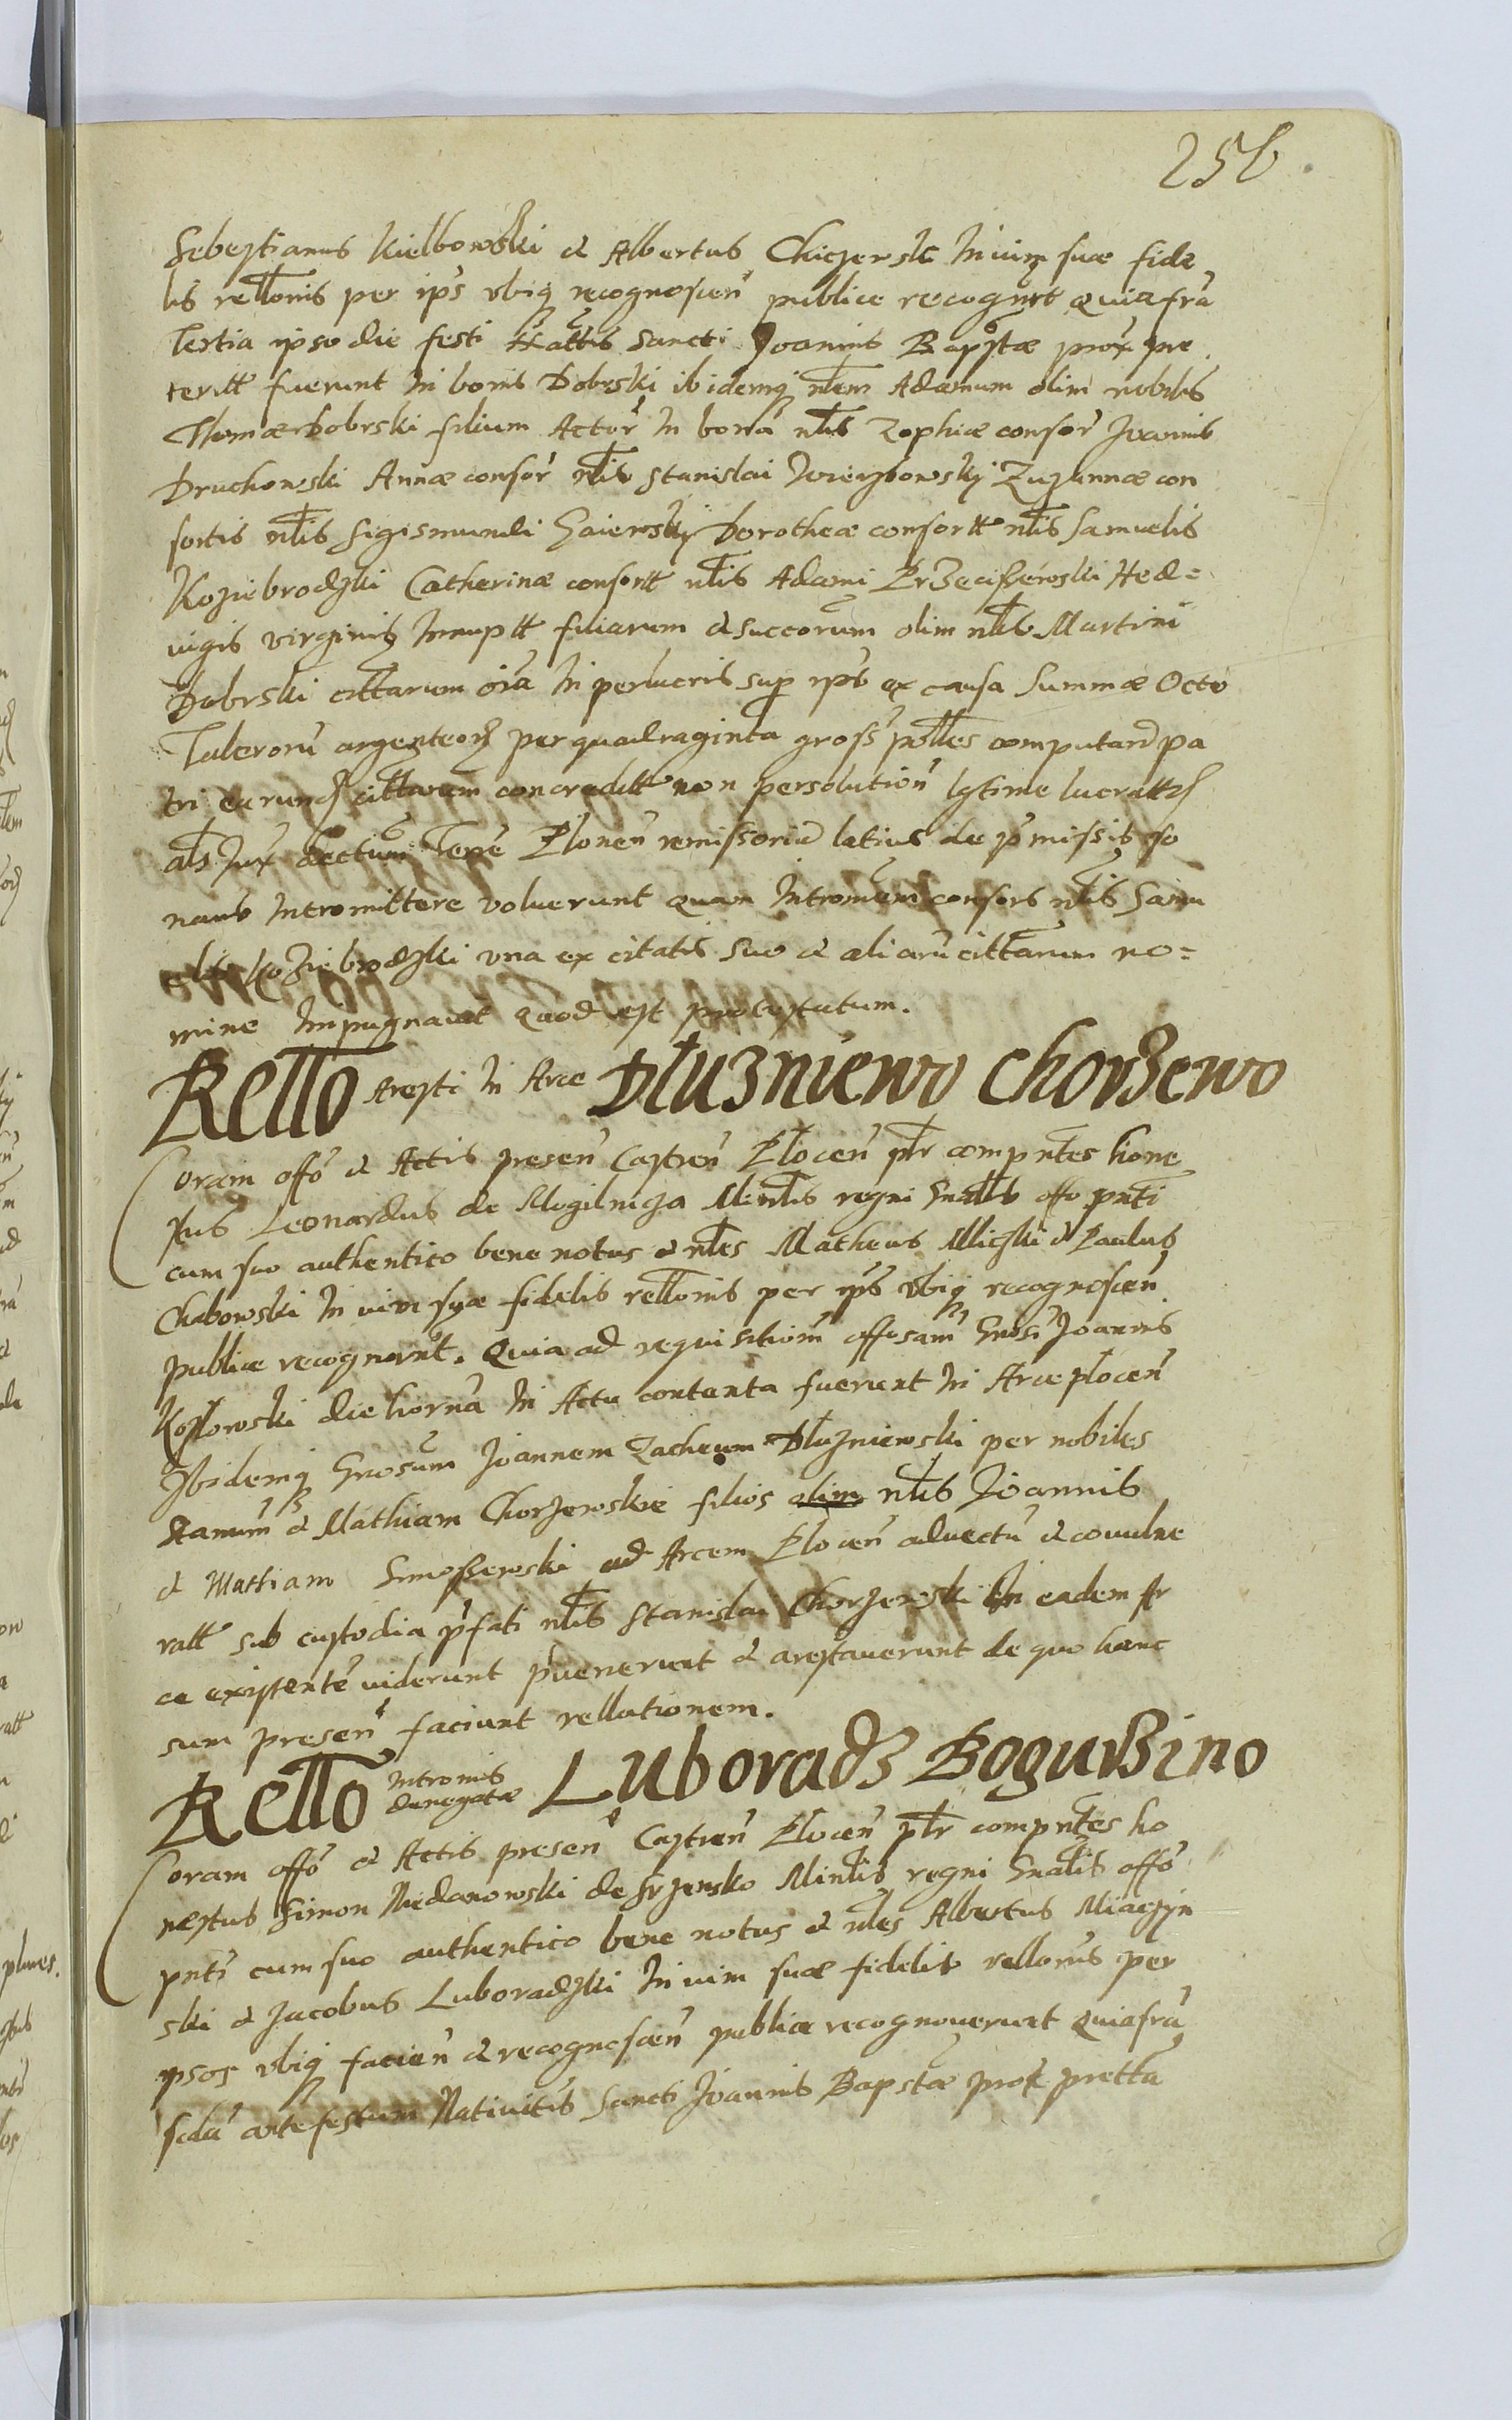 256
Sebestianus Kielbowski et Albertus Chiczersk In vim suæ fide
lis rellonis per ips vbiq recognoscen publice recognrt Quia fra
Tertia ipso die festi Nattis Sancti Joannis Bapstæ prox pre
teritt fuerunt In bonis Dobrski ibidemq nlem Adamum olim nobilis
Thomæ Dobrski filium Actor In bona nlis Zophiæ consor Joannis
Druchowski Annæ consor nlis Stanislai Wierzbowskj Zuzannæ con
sortis nlis Sigismundi Gaiewskj Dorotheæ consortt nlis Samuelis
Koziebrodzki Catherinæ consortt nlis Adami Przeciszewski Hed=
uigis virginis Innuptt filiarum et succorum olim nlis Martini
Dobrski cittarum oia In perlucris sup ips ex causa Summæ Octo
Taleroru argenteor per quadraginta gross polles computand pa
tri earund cittarum concreditt non persolution lgtime lucratt
als Jux dectum Terre Plonen remissoriu latius de pmissis so
nans Intromittere voluerunt Quam Intromem consors nlis Samu
elis Koziebrodzki vna ex citatis suo et aliaru cittarum no=
mine Impugnauit Quod est protestatum.
Rello Aresti In Arce Dłuzniewo Chorzewo
Coram offo et Actis presen Castren Plocen plr compntes hone
stus Leonardus de Mogilnicza Minlis regni Gnalis offo pnti
cum suo authentico bene notus et nles Matheus Miczki et Paulus
Chabowski In vim suæ fidelis rellonis per ips vbiq recognoscen
publice recognornt. Quia ad requisitiom offosam Gnosi Joannis
Kozłowski die hoerna In Actu contenta fuerunt In Arce plocen
Ibidemq Gnosum Joannem Zacheum Dłuzniewski per nobiles
Stanum et Mathiam Chorzewskie filios olim nlis Joannis
et Mattiam Smosszewski ad Arcem Plocen aduectu et conulne
ratt sub custodia pfati nlis Stanislai Chorzewski In eadem Ar
ce existente viderunt puenerunt et arestauerunt de quo hanc
suam presen faciunt rellationem.
Rello Intromis denegatæ Luboradz Bogurzino
Coram offo et Actis presen Castren Plocen plr compntes ho
nestus Simon Niedanowski de Srzensko Minlis regni Gnalis offo
pnti cum suo authentico bene notus et nles Albertus Miaczyn
ski et Jacobus Luboradzki In vim suæ fidelis rellonis per
ipsos vbiq facien et recognoscen publice recognouerunt Quia fra
scda ante festum Natiuitis Sancti Joannis Bapstæ prox pretta